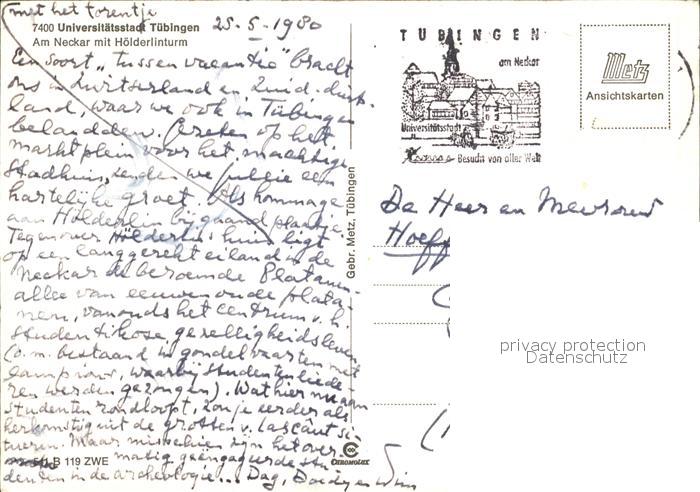 met het torentje
7400 Universitätsstadt Tübingen
25-5-1980
Am Neckar mit Hölderlinturm
Een soort "tussen vacantie" bracht
ons in Zwitserland en Zuid-duits-
land, waar we ook in Tübingen
belandden. op het
marktplein voor het machtige
Stadhuis, zenden we jullie een
hartelijke groet. Als hommage
aan Hölderlin bijgaand plaatje.
Tegenover Hölderlin's huis ligt
op een langgerekt eiland in de
Neckar de beroemde Platanen-
allee van eeuwenoude plata-
nen, vanouds het centrum v. h.
studentikose gezelligheidsleven
(o.m. bestaand in gondelvaarten met
lampions, waarbij studentenliede-
ren werden gezongen). Wat hier nu aan
studenten rondloopt, zou je eerder als
herkomstig uit de grotten v. Lascaux si-
tueren. Maar misschien zijn het over-
matig geëngageerde stu-
denten in de archeologie... Dag, en Wim
B 119 ZWE
CHROMOLUX
Gebr. Metz, Tübingen
TÜBINGEN
am Neckar
Universitätsstadt
Besucht von aller Welt
Metz
Ansichtskarten
De Heer en Mevrouw
Hoeff
privacy protection
Datenschutz